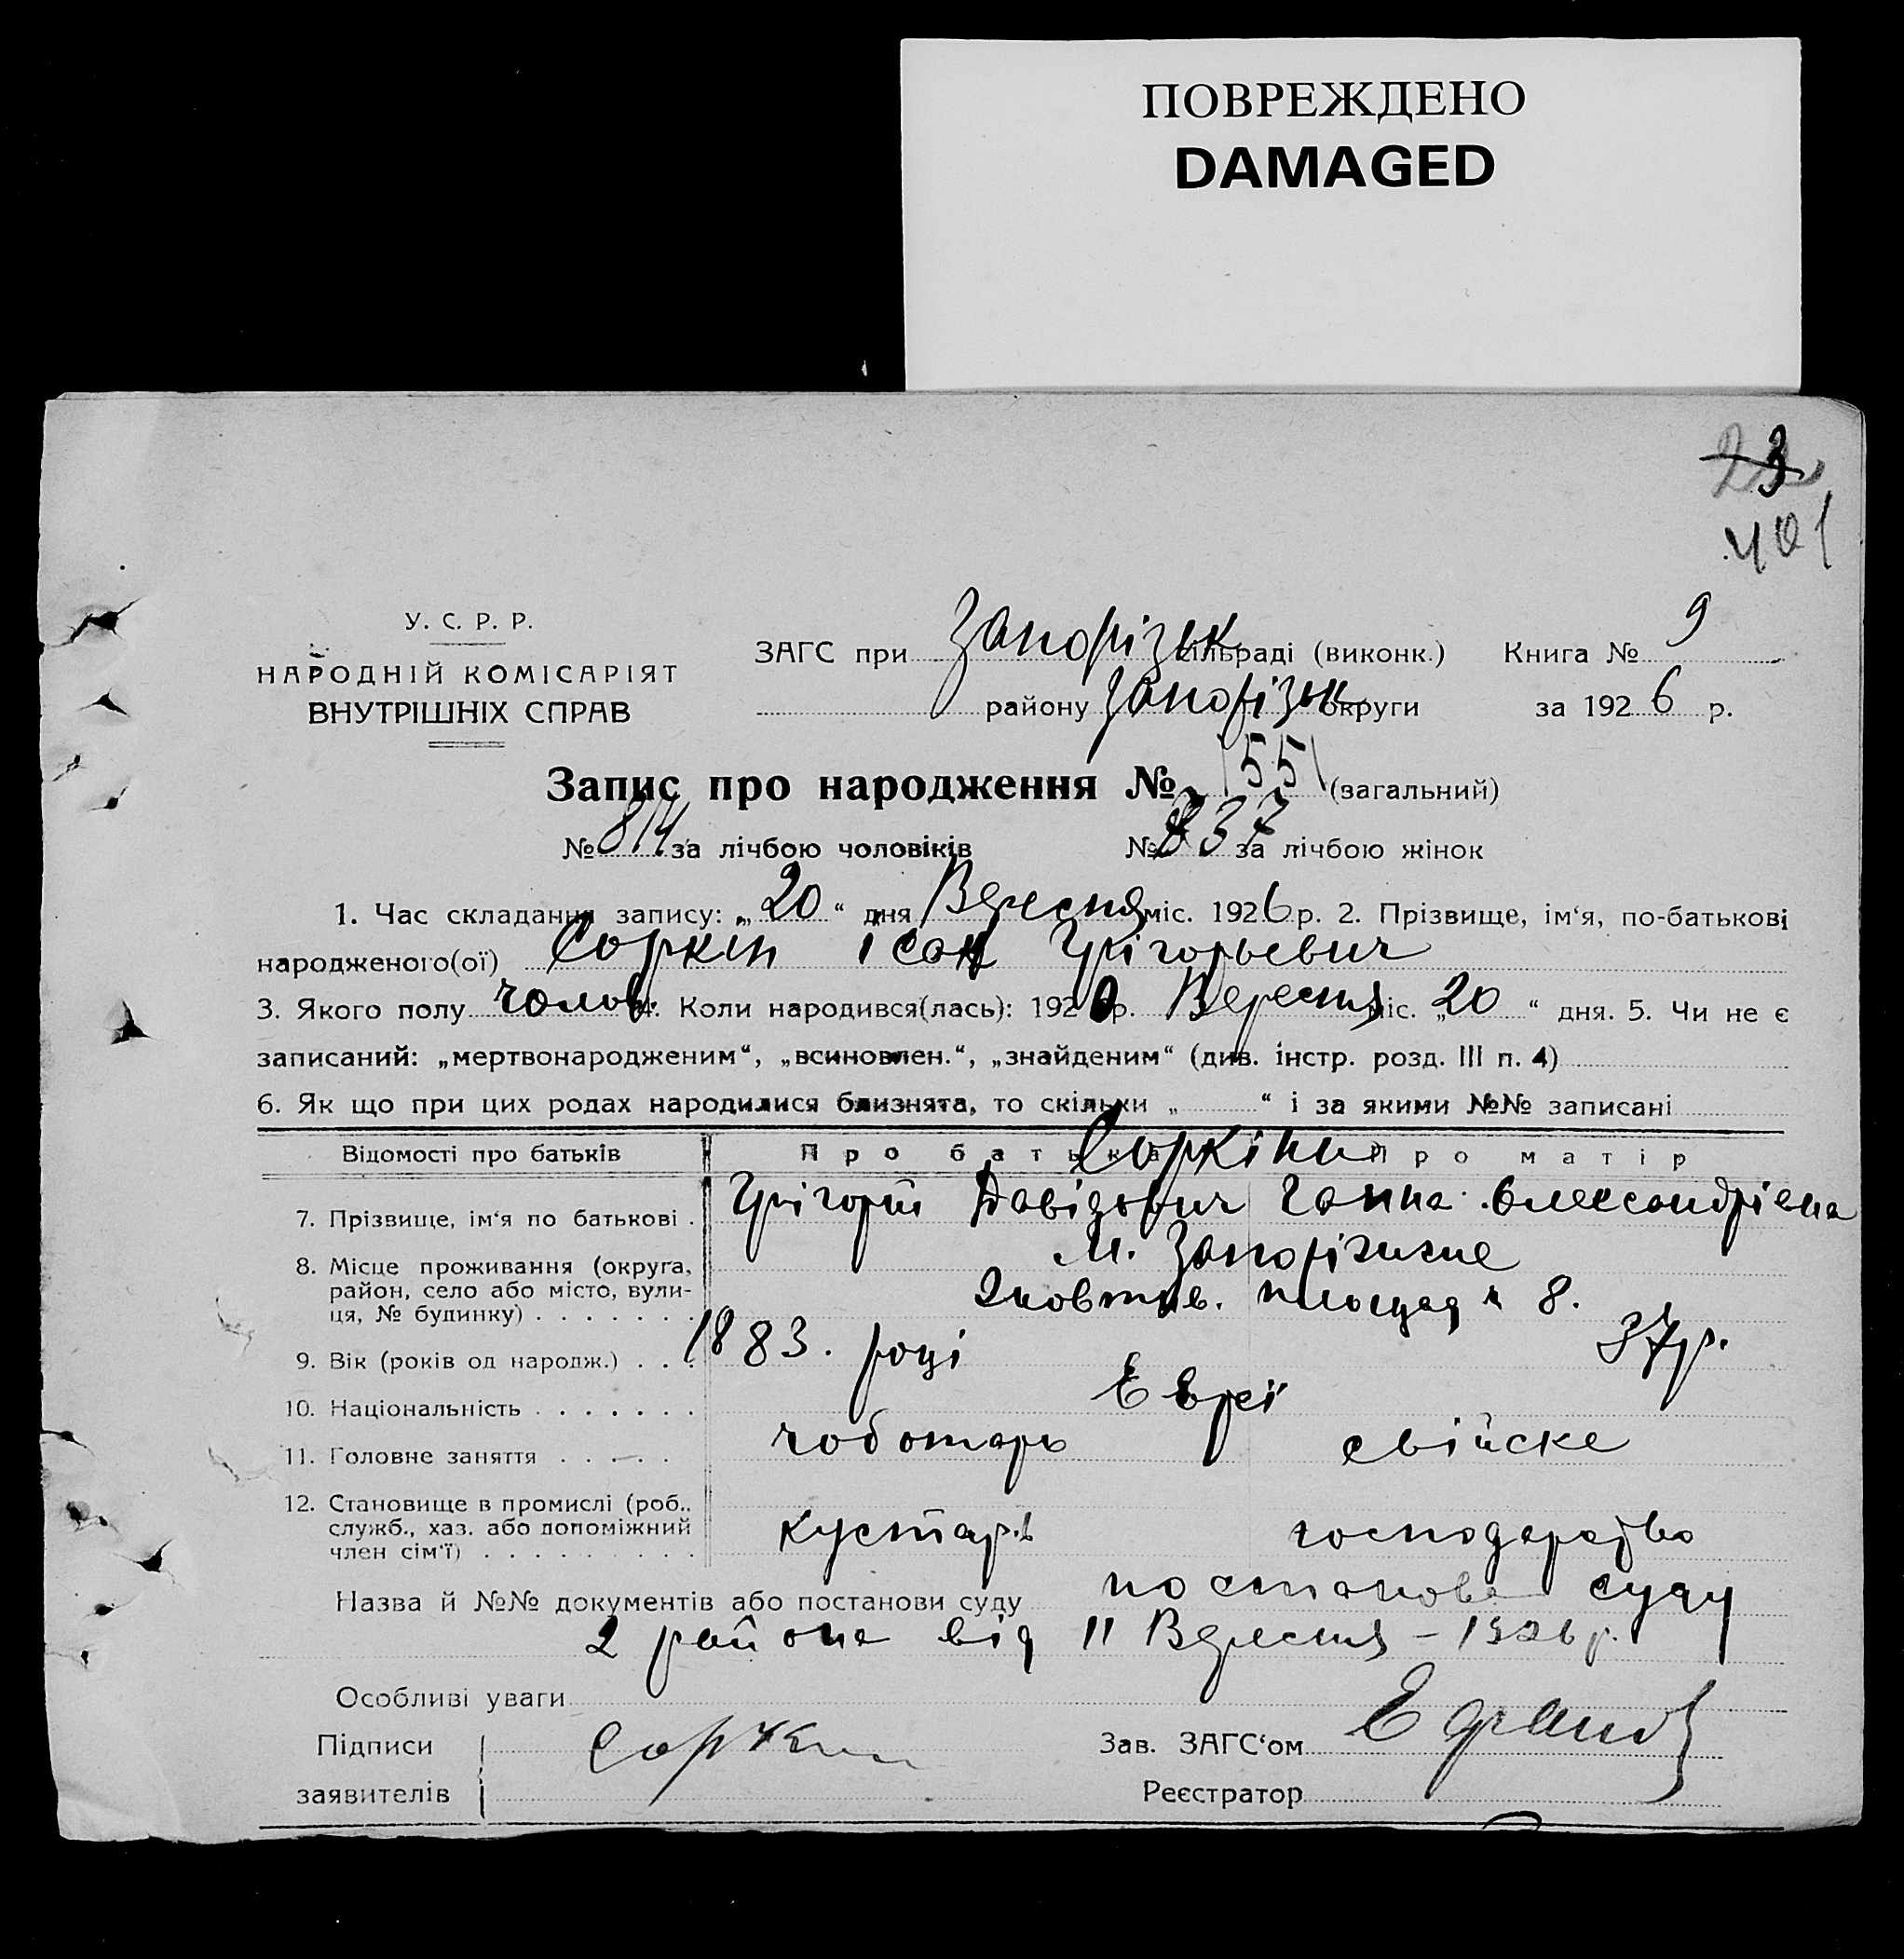 ПОВРЕЖДЕНО
DAMAGED
23
401
У. С. Р. Р.
НАРОДНІЙ КОМІСАРІЯТ
ВНУТРІШНІХ СПРАВ
ЗАГС при Запорізьк сільраді (виконк.) Книга № 9
району Запорізьк округи за 1926 р.
Запис про народження № 1551 (загальний)
№ 814 за лічбою чоловіків № 737 за лічбою жінок
1. Час складання запису: „20“ дня Вересня міс. 1926 р. 2. Прізвище, ім‘я, по-батькові
народженого(ої) Соркін Ісак Грігорьевич
3. Якого полу чолов. 4. Коли народився(лась): 192 р. Вересня міс. „20“ дня. 5. Чи не є
записаний: „мертвонародженим“, „всиновлен.“, „знайденим“ (див. інстр. розд. III п. 4)
6. Як що при цих родах народилися близнята, то скільки „ “ і за якими №№ записані
Відомості про батьків Про батька Соркіни Про матір
7. Прізвище, ім‘я по батькові . Грігорій Давідович Ганна Олександрівна
8. Місце проживання (округа, м. Запоріжжє
район, село або місто, вули-
ця, № будинку) . . . . . . . Жовтнев. площад 8.
9. Вік (років од народж.) . . . 1883. році 37 р.
10. Національність . . . . . . . Евреї
11. Головне заняття . . . . . чоботарь свійске
12. Становище в промислі (роб.,
служб., хаз. або допоміжний кустарь господарство
член сім‘ї) . . . . . . . . .
Назва й №№ документів або постанови суду постанова суду
2 района від 11 Вересня – 1926 р.
Особливі уваги
Підписи Соркин Зав. ЗАГС‘ом
заявителів Реєстратор